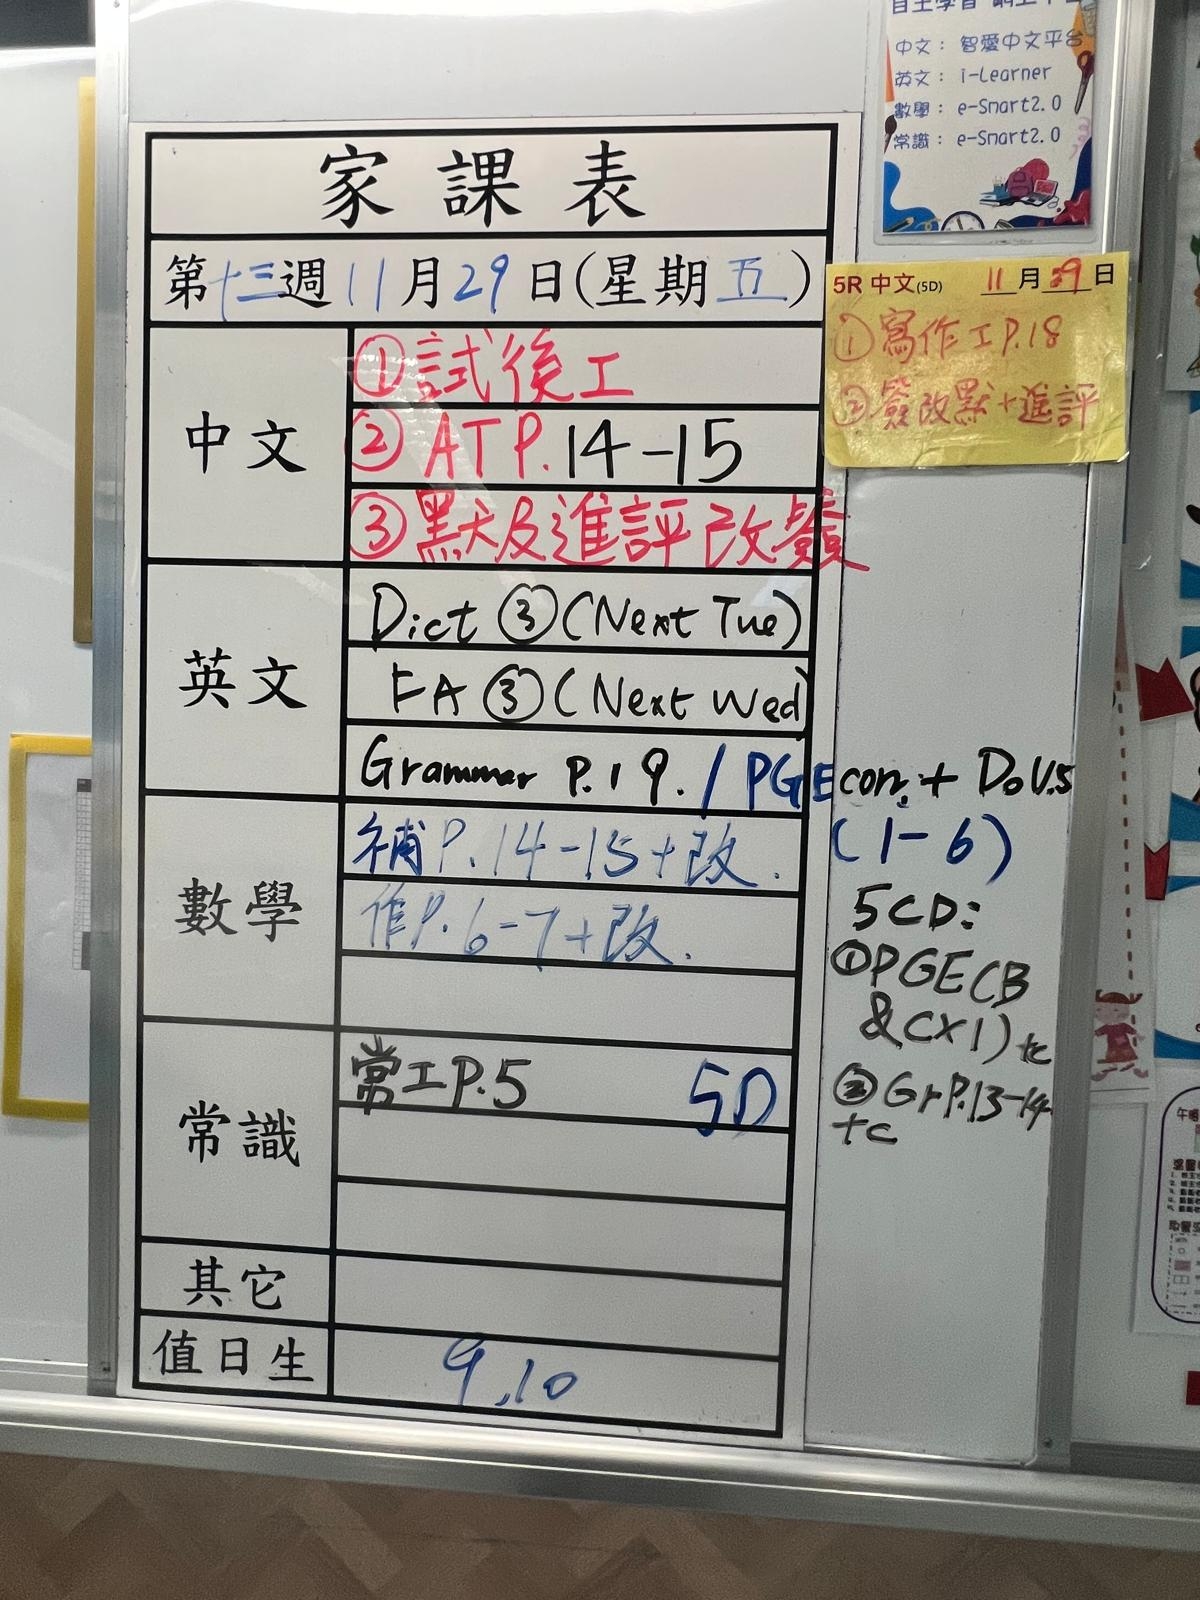 中文： 智愛中文平台
英文： i-Learner
數學： e-Smart2.0
常識： e-Smart2.0
家課表
第十三週11月29日(星期五)
中文
①試後工
②ATP.14-15
③默及進評改簽
英文
Dict ③(Next Tue)
FA ③(Next Wed
Grammar P.19. / PGE con. + Do U.5
(1-6)
數學
補P.14-15+改.
作P.6-7+改.
常識
常工P.5 5D
其它
值日生
9,10
5R 中文(5D) 11月29日
①寫作工P.18
②簽改默+進評
5CD:
①PGE CB
&C×1) tc
②Gr P.13-14
+c